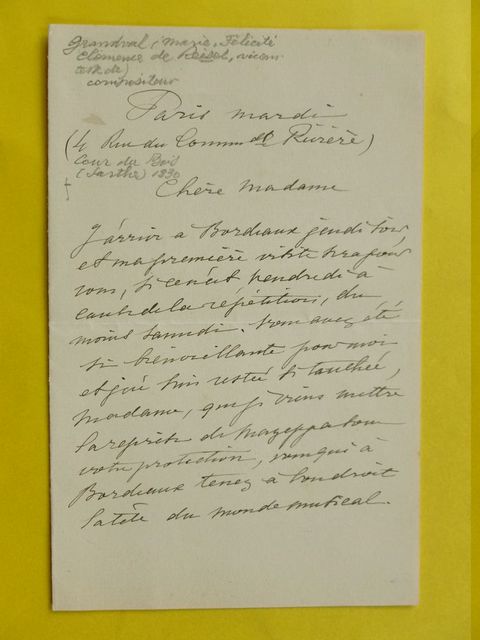 Grandval (Marie, Félicité
Clémence de Reiset, vicom
tesse de)
compositeur
Paris mardi
(4 Rue du Comm dt Rivière)
Cour du Bois
(Sarthe) 1830
Chère Madame
J'arrive a Bordeaux jeudi soir
et ma première visite sera pour
vous, si ce n'est vendredi à
cause de la répétition, du
moins samedi. Vous avez été
si bienveillante pour moi
et j'en suis restée si touchée,
Madame, que je viens mettre
la reprise de Mazeppa sous
votre protection, vous qui à
Bordeaux tenez à bon droit
la tête du monde musical.